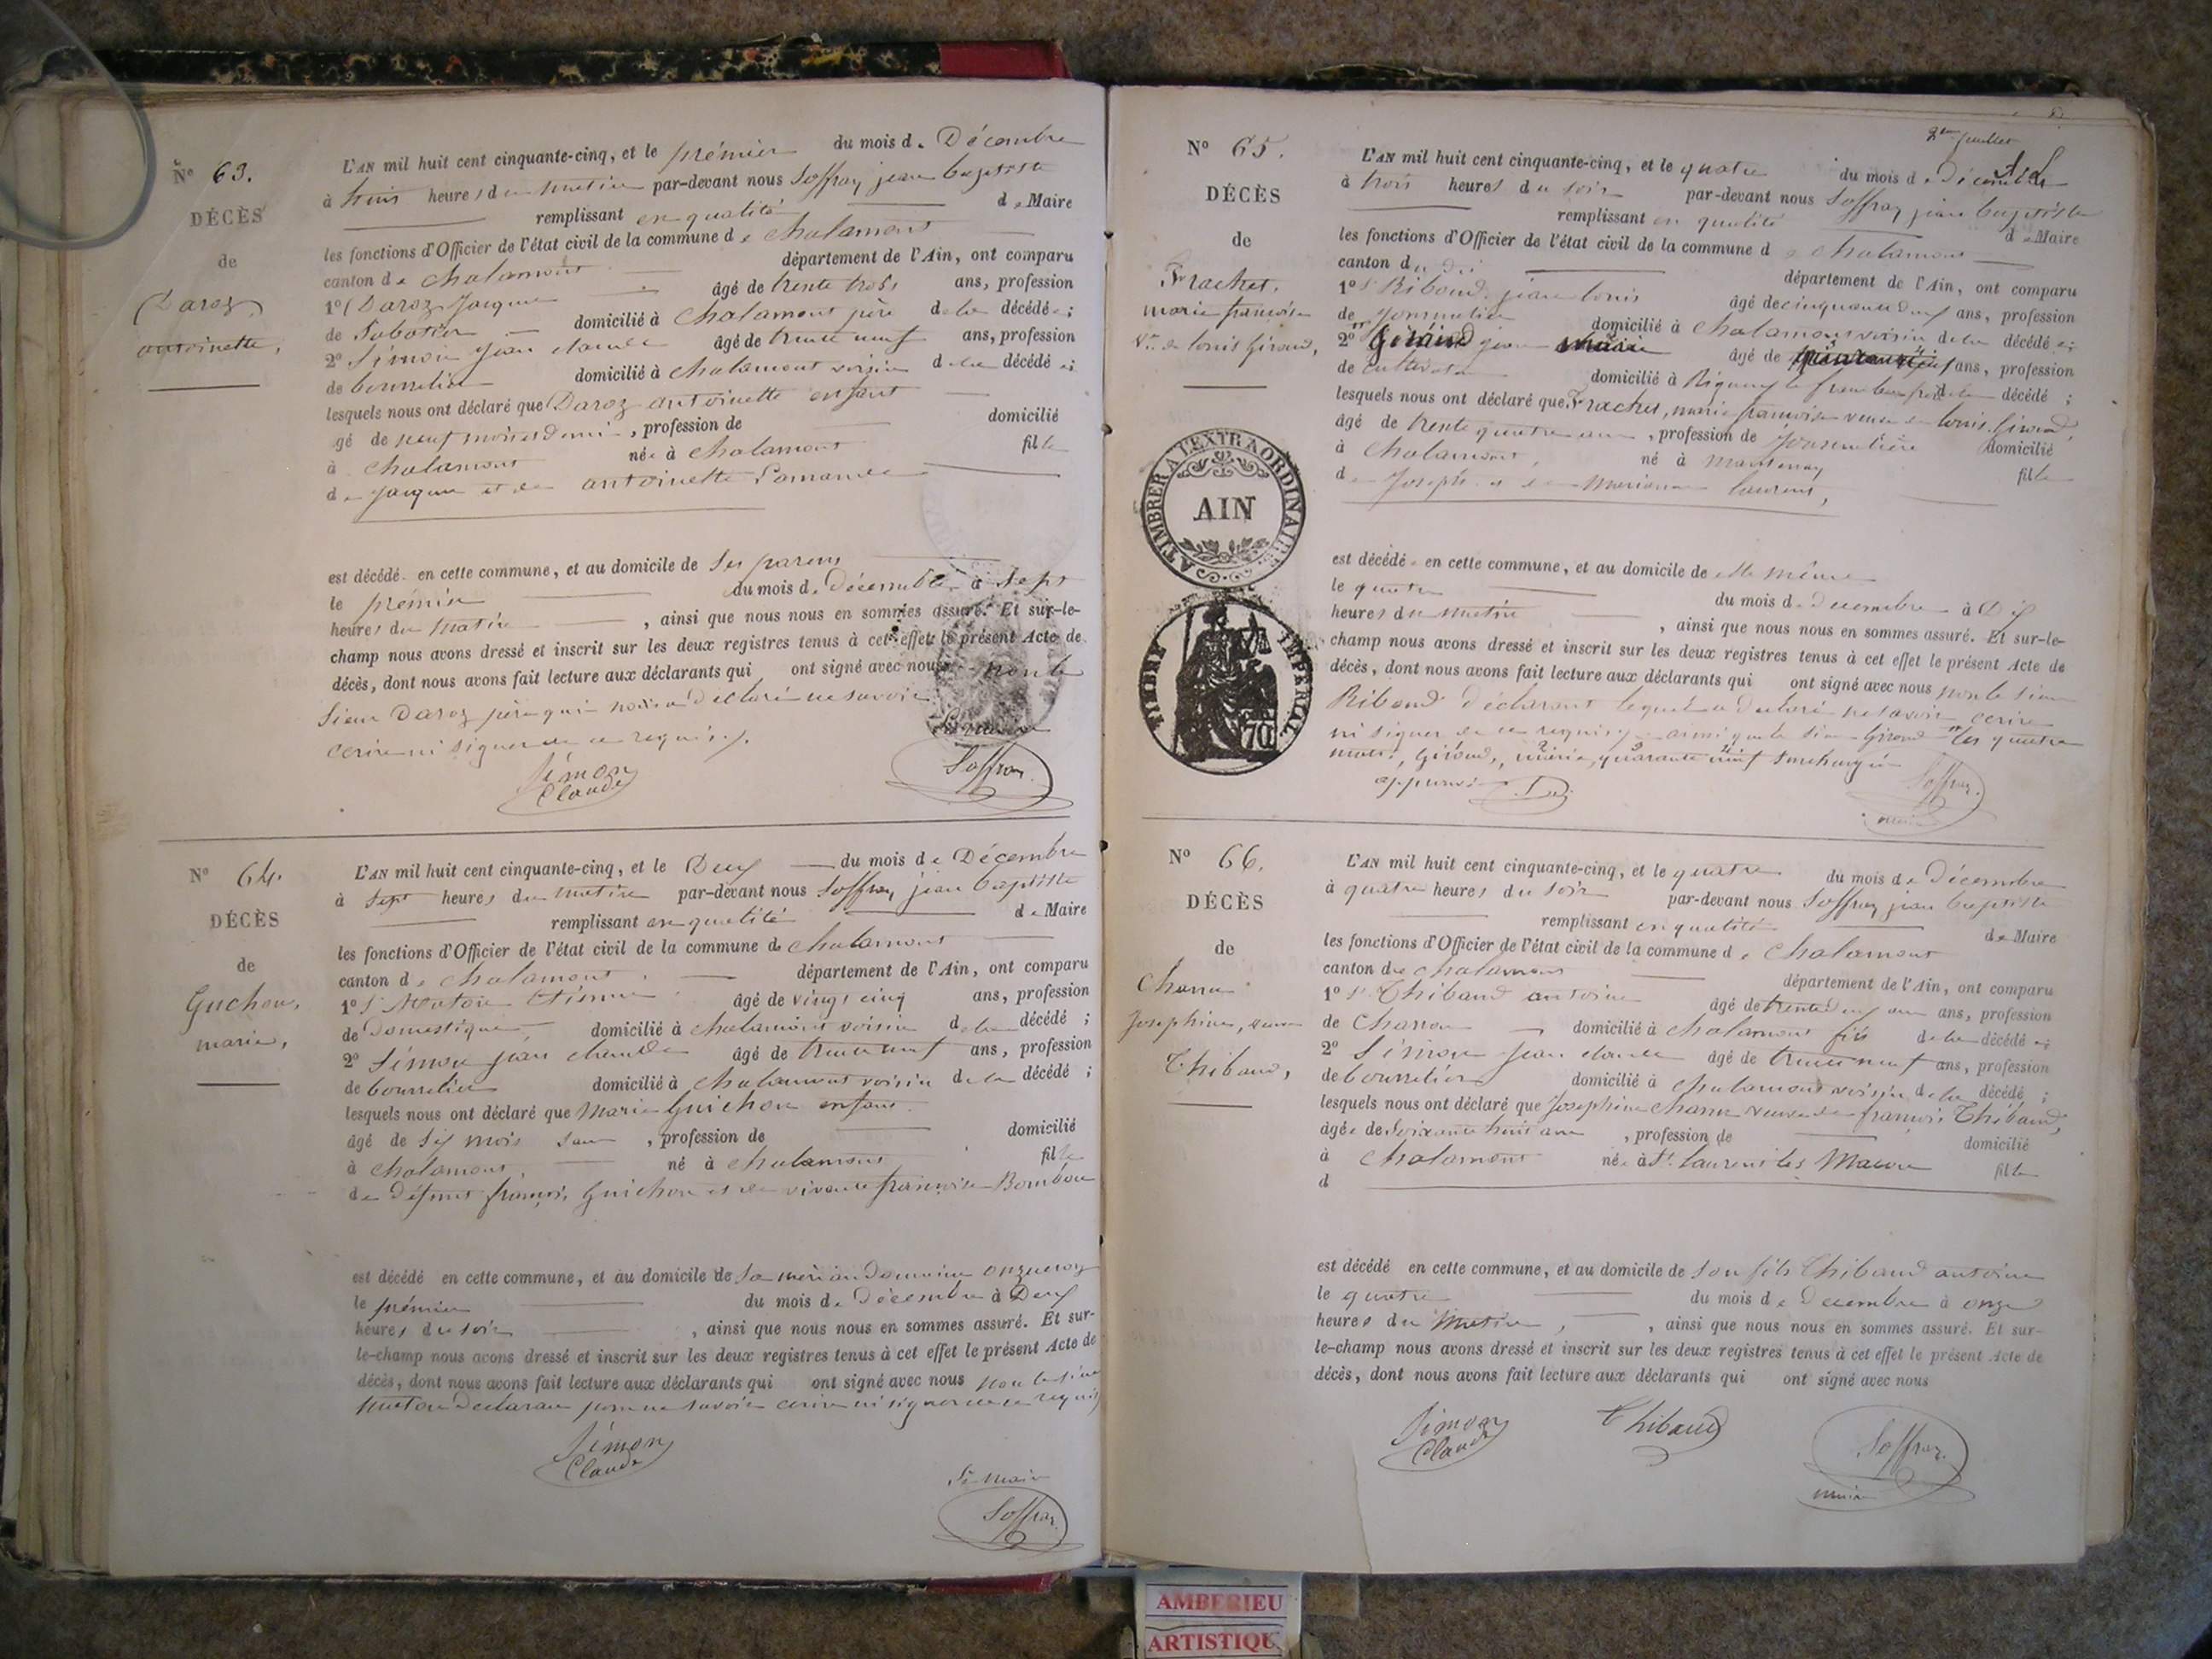 N° 63.
DÉCÈS
de
Daroz
antoinette,
L'AN mil huit cent cinquante-cinq, et le prémier du mois de Décembre
à heures du matin par-devant nous Soffray jean baptiste
remplissant en qualité de Maire
les fonctions d'Officier de l'état civil de la commune de chalamont
canton de chalamont département de l'Ain, ont comparu
1° Daroz Jacques âgé de trente trois ans, profession
de Sabotier domicilié à chalamont père de la décédée;
2° Simon jean claude âgé de trente neuf ans, profession
de bourrelier domicilié à chalamont voisin de la décédée;
lesquels nous ont déclaré que Daroz antoinette enfant
âgé de neuf mois et demi, profession de domicilié
à chalamont née à chalamont fille
de jacques et de antoinette
est décédé en cette commune, et au domicile de ses parens
le prémier du mois de décembre à sept
heures du matin, ainsi que nous nous en sommes assuré. Et sur-le-
champ nous avons dressé et inscrit sur les deux registres tenus à cet effet le présent Acte de
décès, dont nous avons fait lecture aux déclarants qui ont signé avec nous non le
sieur Daroz père qui nous a déclaré ne savoir
écrire ni signer de ce requis.
Simon
Claude
Soffray
N° 64.
DÉCÈS
de
Guichon,
marie,
L'AN mil huit cent cinquante-cinq, et le Deux du mois de Décembre
à sept heures du matin par-devant nous Soffray jean baptiste
remplissant en qualité de Maire
les fonctions d'Officier de l'état civil de la commune de chalamont
canton de chalamont département de l'Ain, ont comparu
1° Sr Moton Etienne âgé de vingt cinq ans, profession
de Domestique domicilié à chalamont voisin de la décédé;
2° Simon jean claude âgé de trente neuf ans, profession
de bourrelier domicilié à chalamont voisin de la décédé;
lesquels nous ont déclaré que Marie Guichon enfant
âgé de six mois, profession de domicilié
à chalamont, né à chalamont fille
de défunt françois Guichon et de vivante françoise Bombou
est décédé en cette commune, et au domicile de sa mère au domaine
le prémier du mois de décembre à Deux
heures du soir, ainsi que nous nous en sommes assuré. Et sur-
le-champ nous avons dressé et inscrit sur les deux registres tenus à cet effet le présent Acte de
décès, dont nous avons fait lecture aux déclarants qui ont signé avec nous non le sieur
Moton déclarant pour ne savoir écrire ni signer de ce requis
Simon
Claude
le maire
Soffray
N° 65.
DÉCÈS
de
Frachet,
marie françoise
Ve de louis Giroud,
2me feuillet
L'AN mil huit cent cinquante-cinq, et le quatre du mois de Décembre
à trois heures du soir par-devant nous Soffray jean baptiste
remplissant en qualité de Maire
les fonctions d'Officier de l'état civil de la commune de chalamont
canton du dit département de l'Ain, ont comparu
1° Sr Riboud jean louis âgé de cinquante deux ans, profession
de domicilié à chalamont voisin de la décédée;
2° Giroud jean marie âgé de quarante neuf ans, profession
de cultivateur domicilié à de la décédé;
lesquels nous ont déclaré que Frachet, marie françoise veuve de louis Giroud
âgé de trente quatre ans, profession de domicilié
à chalamont, né à fille
de Joseph et de laurent,
est décédée en cette commune, et au domicile de elle même
le quatre du mois de Décembre à Dix
heures du matin, ainsi que nous nous en sommes assuré. Et sur-le-
champ nous avons dressé et inscrit sur les deux registres tenus à cet effet le présent Acte de
décès, dont nous avons fait lecture aux déclarants qui ont signé avec nous non le sieur
Riboud déclarant lequel a déclaré ne savoir écrire
ni signer de ce requis le sieur Giroud les quatre
mots, Giroud, marie, quarante neuf surchargés
approuvés
Soffray
maire
A TIMBRER A L'EXTRAORDINAIRE
AIN
TIMBRE IMPERIAL
70
N° 66.
DÉCÈS
de
Charru
Josephine, veuve
Thibaud,
L'AN mil huit cent cinquante-cinq, et le quatre du mois de Décembre
à quatre heures du soir par-devant nous Soffray jean baptiste
remplissant en qualité de Maire
les fonctions d'Officier de l'état civil de la commune de chalamont
canton de chalamont département de l'Ain, ont comparu
1° Sr Thibaud antoine âgé de trente deux ans ans, profession
de Charron domicilié à chalamont fils de la décédée;
2° Simon jean claude âgé de trente neuf ans, profession
de bourrelier domicilié à chalamont voisin de la décédé;
lesquels nous ont déclaré que Josephine Charru veuve de françois Thibaud,
âgée de soixante huit ans, profession de domicilié
à chalamont née à St laurent les Macon fille
d
est décédé en cette commune, et au domicile de son fils Thibaud antoine
le quatre du mois de Décembre à onze
heures du Matin, ainsi que nous nous en sommes assuré. Et sur-
le-champ nous avons dressé et inscrit sur les deux registres tenus à cet effet le présent Acte de
décès, dont nous avons fait lecture aux déclarants qui ont signé avec nous
Simon
Claude
Thibaud
Soffray
maire
AMBERIEU
ARTISTIQU